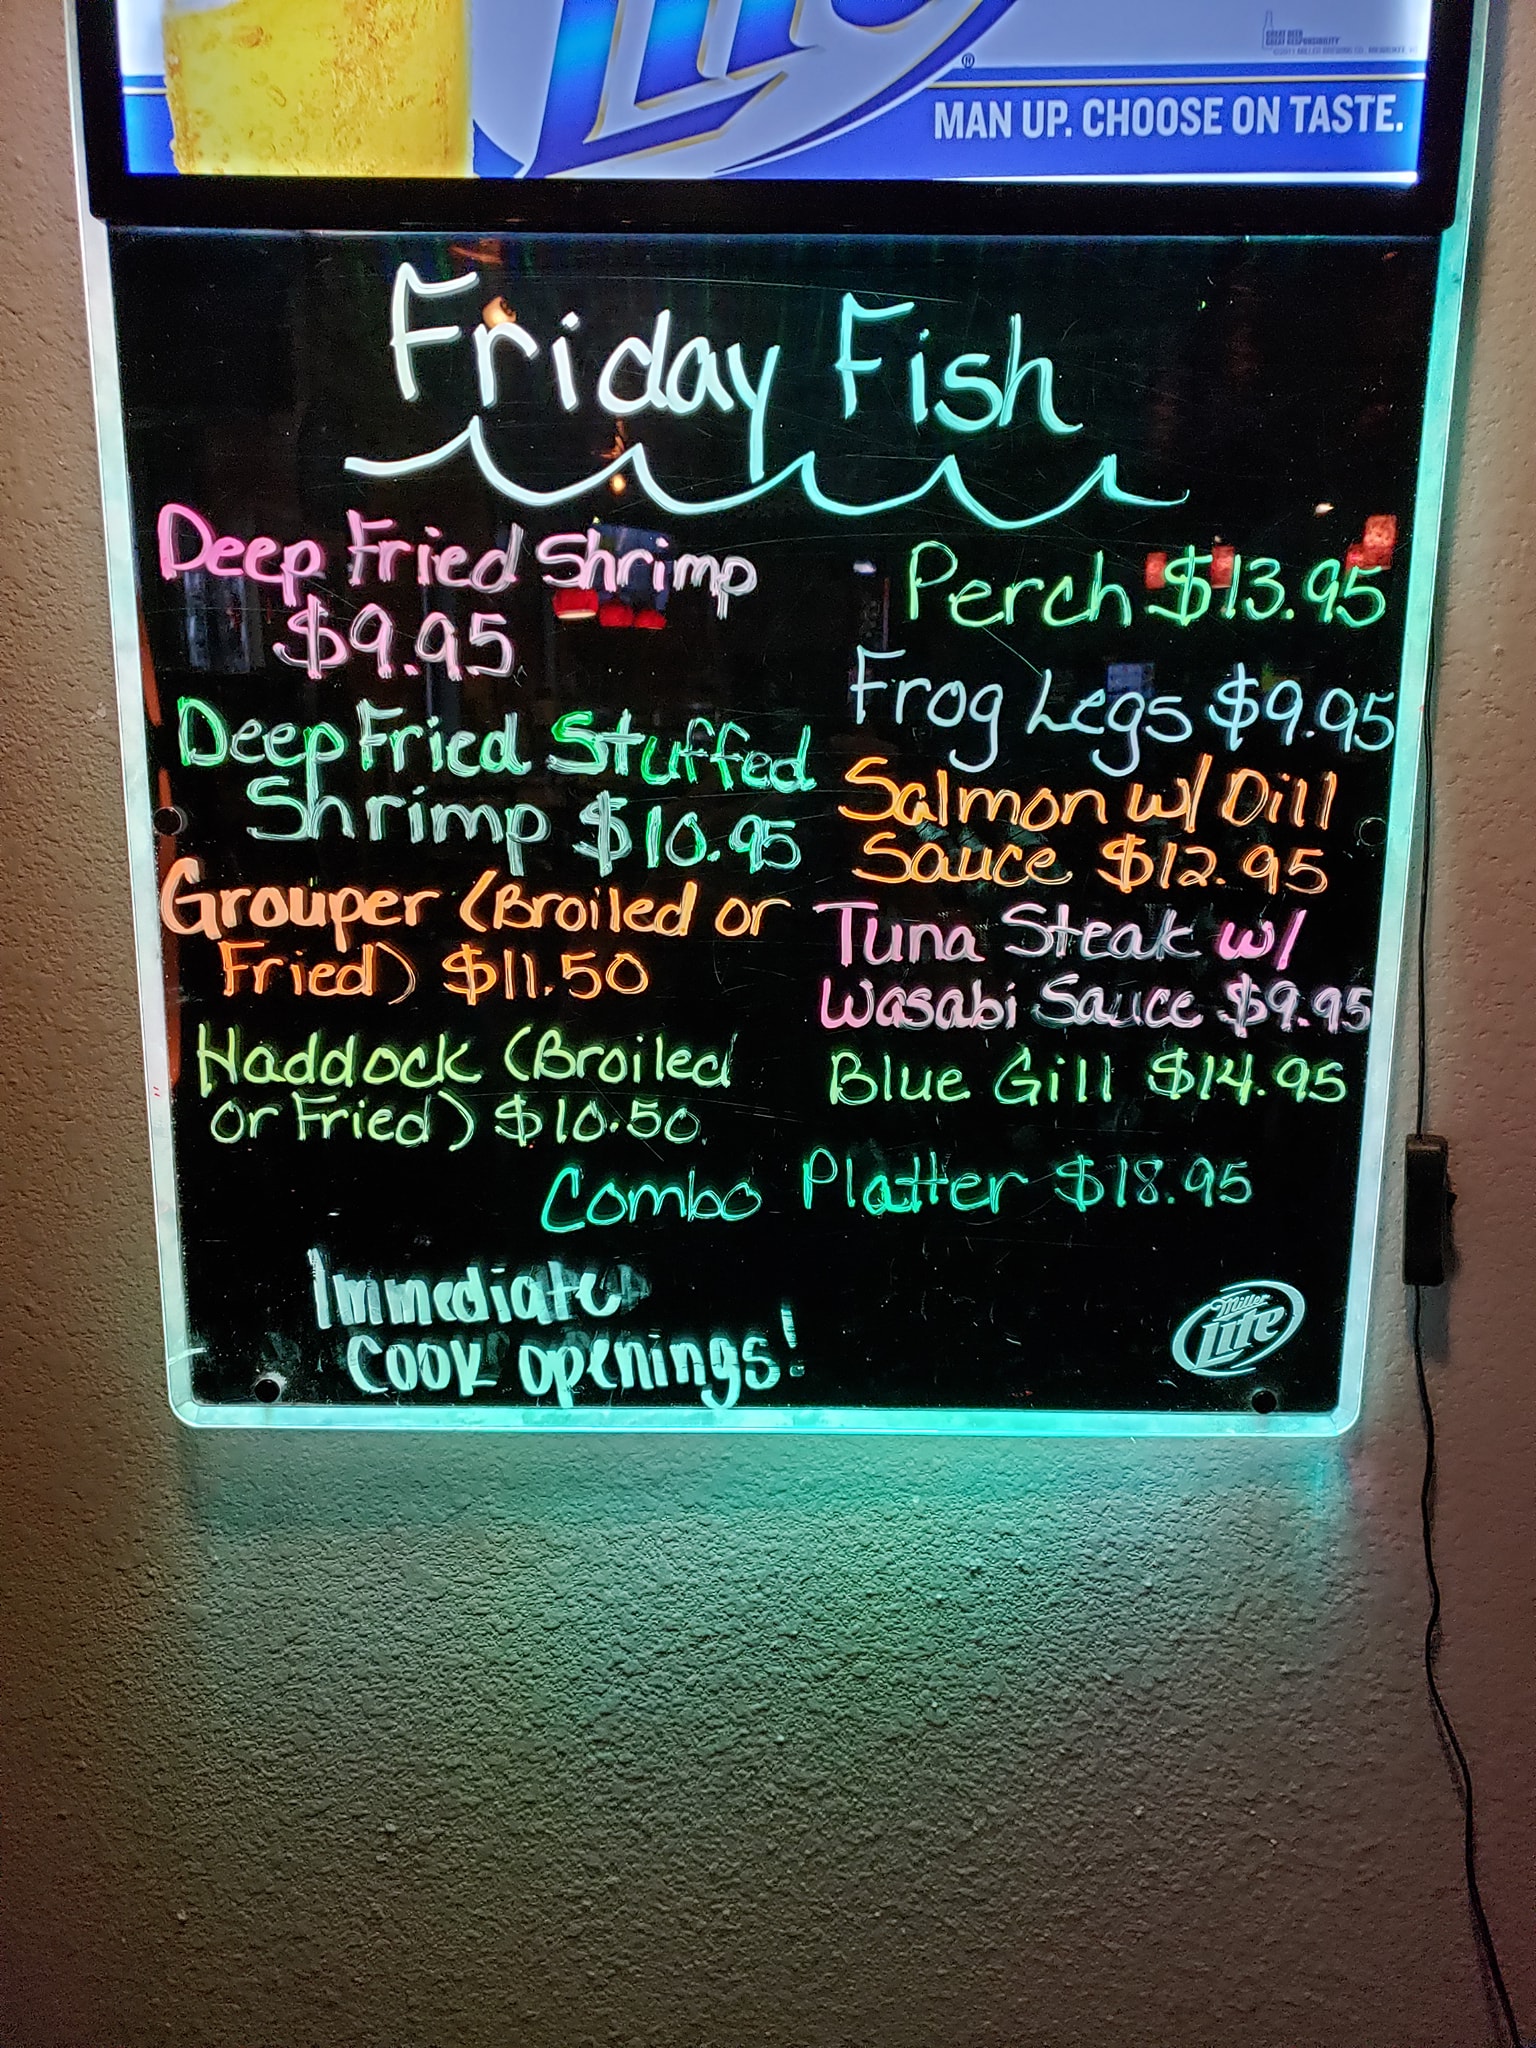 Lite
GREAT BEER
GREAT RESPONSIBILITY
©2011 MILLER BREWING CO., MILWAUKEE, WI
®
MAN UP. CHOOSE ON TASTE.
Friday Fish
Deep Fried Shrimp
$9.95
Deep Fried Stuffed
Shrimp $10.95
Grouper (Broiled or
Fried) $11.50
Haddock (Broiled
or Fried) $10.50
Perch $13.95
Frog Legs $9.95
Salmon w/ Dill
Sauce $12.95
Tuna Steak w/
Wasabi Sauce $9.95
Blue Gill $14.95
Combo Platter $18.95
Immediate
Cook openings!
Miller
Lite